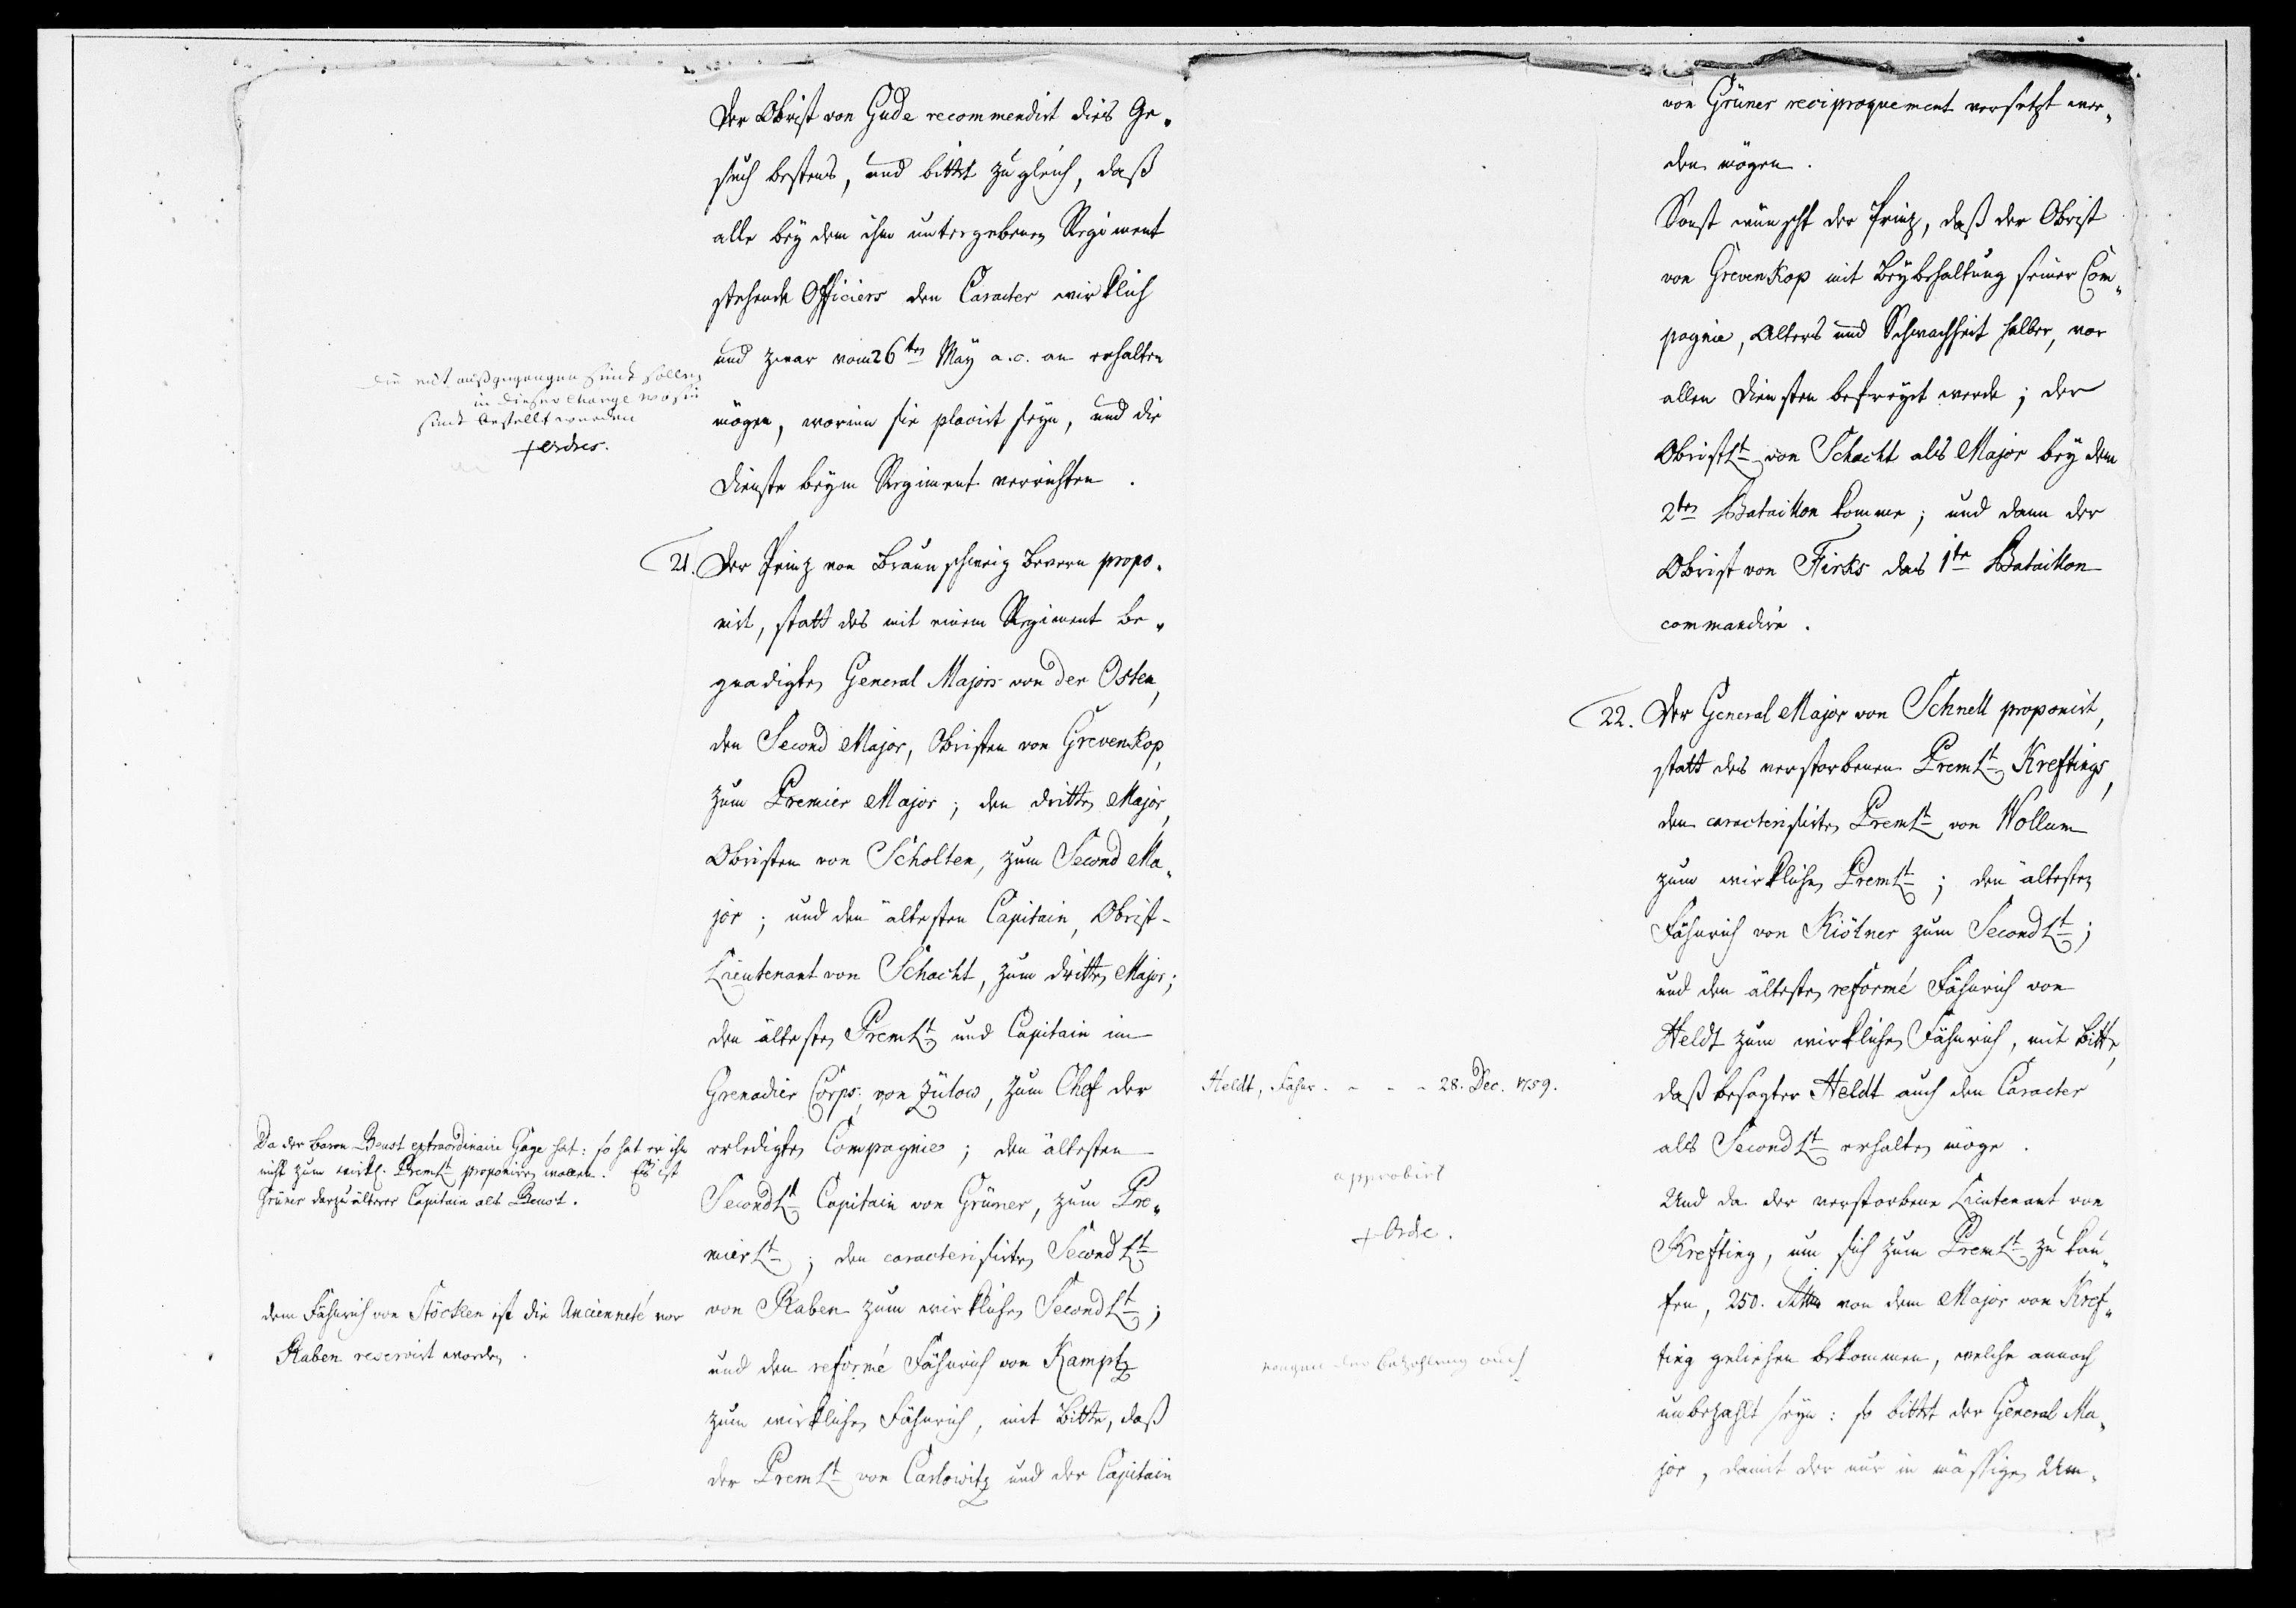 Der Obrist von Gude recommendirt dies Ge-
such bestens, und bittet zugleich, daß
alle bey dem ihm untergebenen Regiment
stehende Officiers den Caracter wirklich
und zwar vom 26ten May a.c. an erhalten
mögen, worinn sie placirt seyn, und die
Dienste beym Regiment verrichten.
die mit ausgegangen sindt sollen
in dieser Charge wo sie
sindt bestellt werden
+ Ordres.
21. Der Prinz von Braunschweig Bevern propo-
nirt, statt des mit einem Regiment be-
gnadigten General Majors von der Osten,
den Second Major, Obristen von Grevenkop,
zum Premier Major; den dritten Major,
Obristen von Scholten, zum Second Ma-
jor; und den ältesten Capitain, Obrist-
Lieutenant von Schacht, zum dritten Major;
den ältesten PremLt und Capitain im
Grenadier Corps, von Zülow, zum Chef der
erledigten Compagnie; den ältesten
SecondLt Capitain von Grüner, zum Pre-
mierLt; den caracterisirten SecondLt
von Raben zum wirklichen SecondLt;
und den reformé Fähnrich von Kamptz
zum wirklichen Fähnrich, mit Bitte, daß
der PremLt von Carlowitz und der Capitain
Da der Baron Beust extraordinaire Gage hat: so hat er ihn
nicht zum wirkl. PremLt proponiren wollen. Es ist
Grüner darzu älterer Capitain als Beust.
dem Fähnrich von Stöcken ist die Ancienneté vor
Raben reservirt worden.
von Grüner reciproquement versetzt wer-
den mögen.
Sonst wünscht der Prinz, daß der Obrist
von Grevenkop mit Beybehaltung seiner Com-
pagnie, Alters und Schwachheit halber, von
allen Diensten befreyet werde; der
ObristLt von Schacht als Major bey dem
2ten Bataillon komme; und dann der
Obrist von Firks das 1te Bataillon
commandire.
22. Der General Major von Schnell proponirt,
statt des verstorbenen PremLt Kreftings,
den caracterisirten PremLt von Wollum
zum wirklichen PremLt; den ältesten
Fähnrich von Kiötner zum SecondLt;
und den ältesten reformé Fähnrich von
Heldt zum wirklichen Fähnrich, mit Bitte,
daß besagter Heldt auch den Caracter
als SecondLt erhalten möge.
Heldt, Fähnr. - - - 28. Dec. 1759.
approbirt
+ Orde.
Und da der verstorbene Lieutenant von
Krefting, um sich zum PremLt zu kau-
fen, 250. Rthlr von dem Major von Kref-
ting geliehen bekommen, welche annoch
unbezahlt seyn: so bittet der General Ma-
jor, damit der nur in mässigen Um-
wegen der bezahlung auch